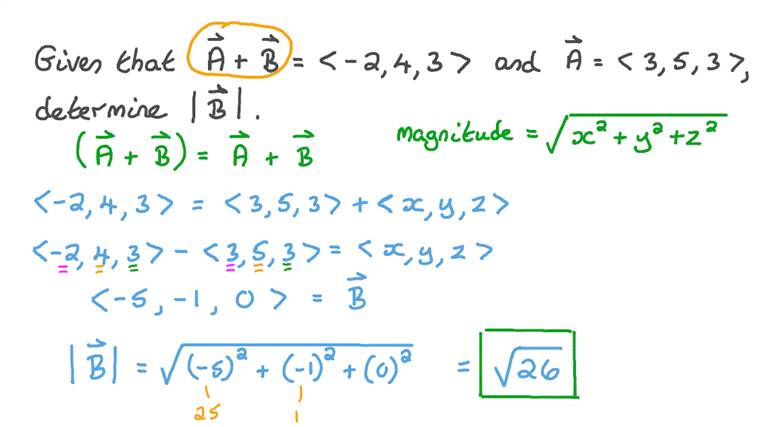 Given that A⃗ + B⃗ = < -2, 4, 3 > and A⃗ = < 3, 5, 3 >,
determine |B⃗|.
magnitude = √(x² + y² + z²)
(A⃗ + B⃗) = A⃗ + B⃗
< -2, 4, 3 > = < 3, 5, 3 > + < x, y, z >
< -2, 4, 3 > - < 3, 5, 3 > = < x, y, z >
< -5, -1, 0 > = B⃗
|B⃗| = √((-5)² + (-1)² + (0)²) = √26
25 1